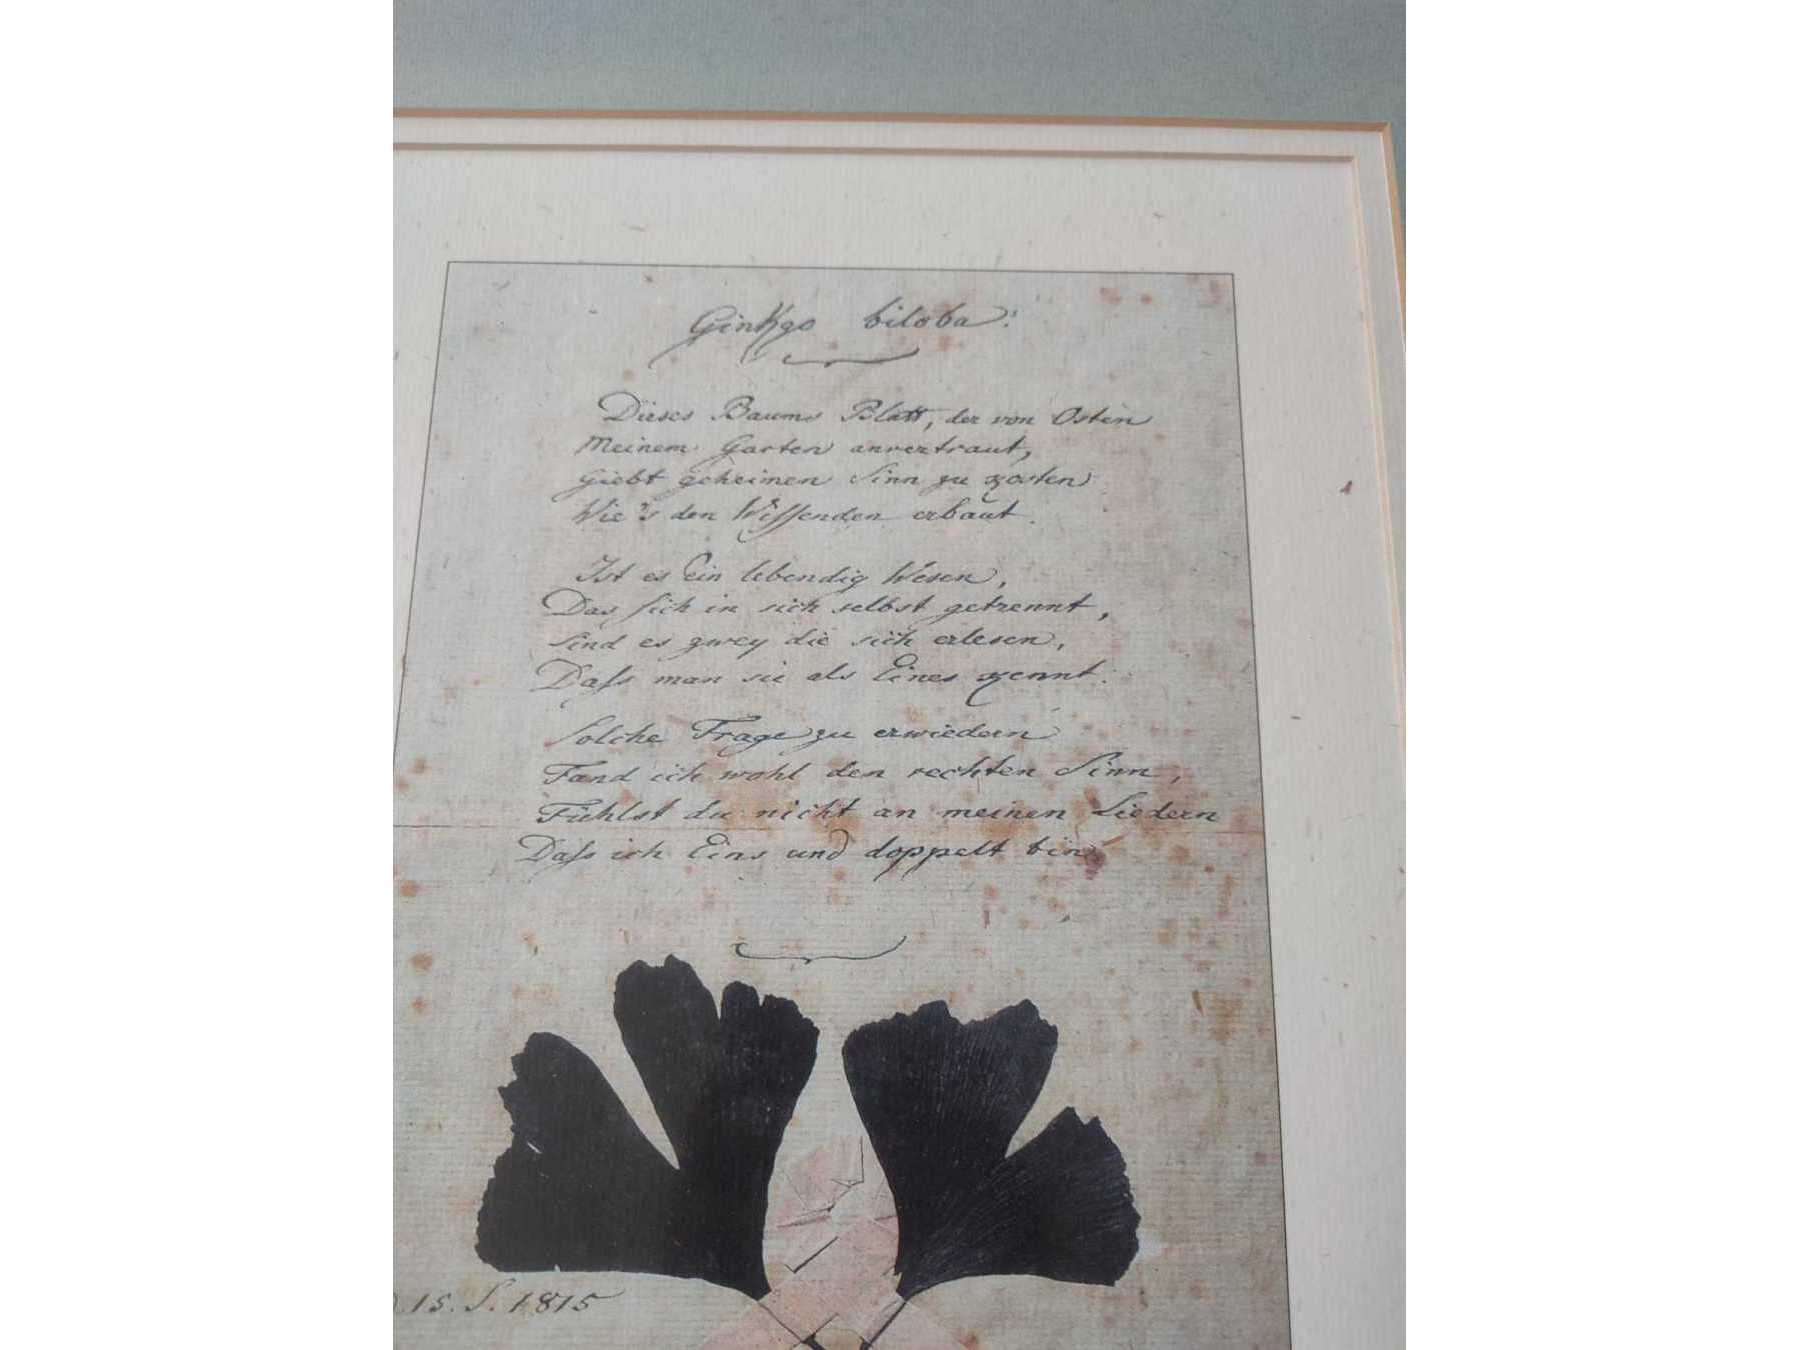 Ginkgo biloba.
Dieses Baums Blatt, der von Osten
Meinem Garten anvertraut,
Giebt geheimen Sinn zu kosten
Wie's den Wissenden erbaut.
Ist es Ein lebendig Wesen,
Das sich in sich selbst getrennt,
Sind es zwey die sich erlesen,
Dass man sie als Eines kennt.
Solche Frage zu erwiedern
Fand ich wohl den rechten Sinn,
Fühlst du nicht an meinen Liedern
Dass ich Eins und doppelt bin.
15. S. 1815